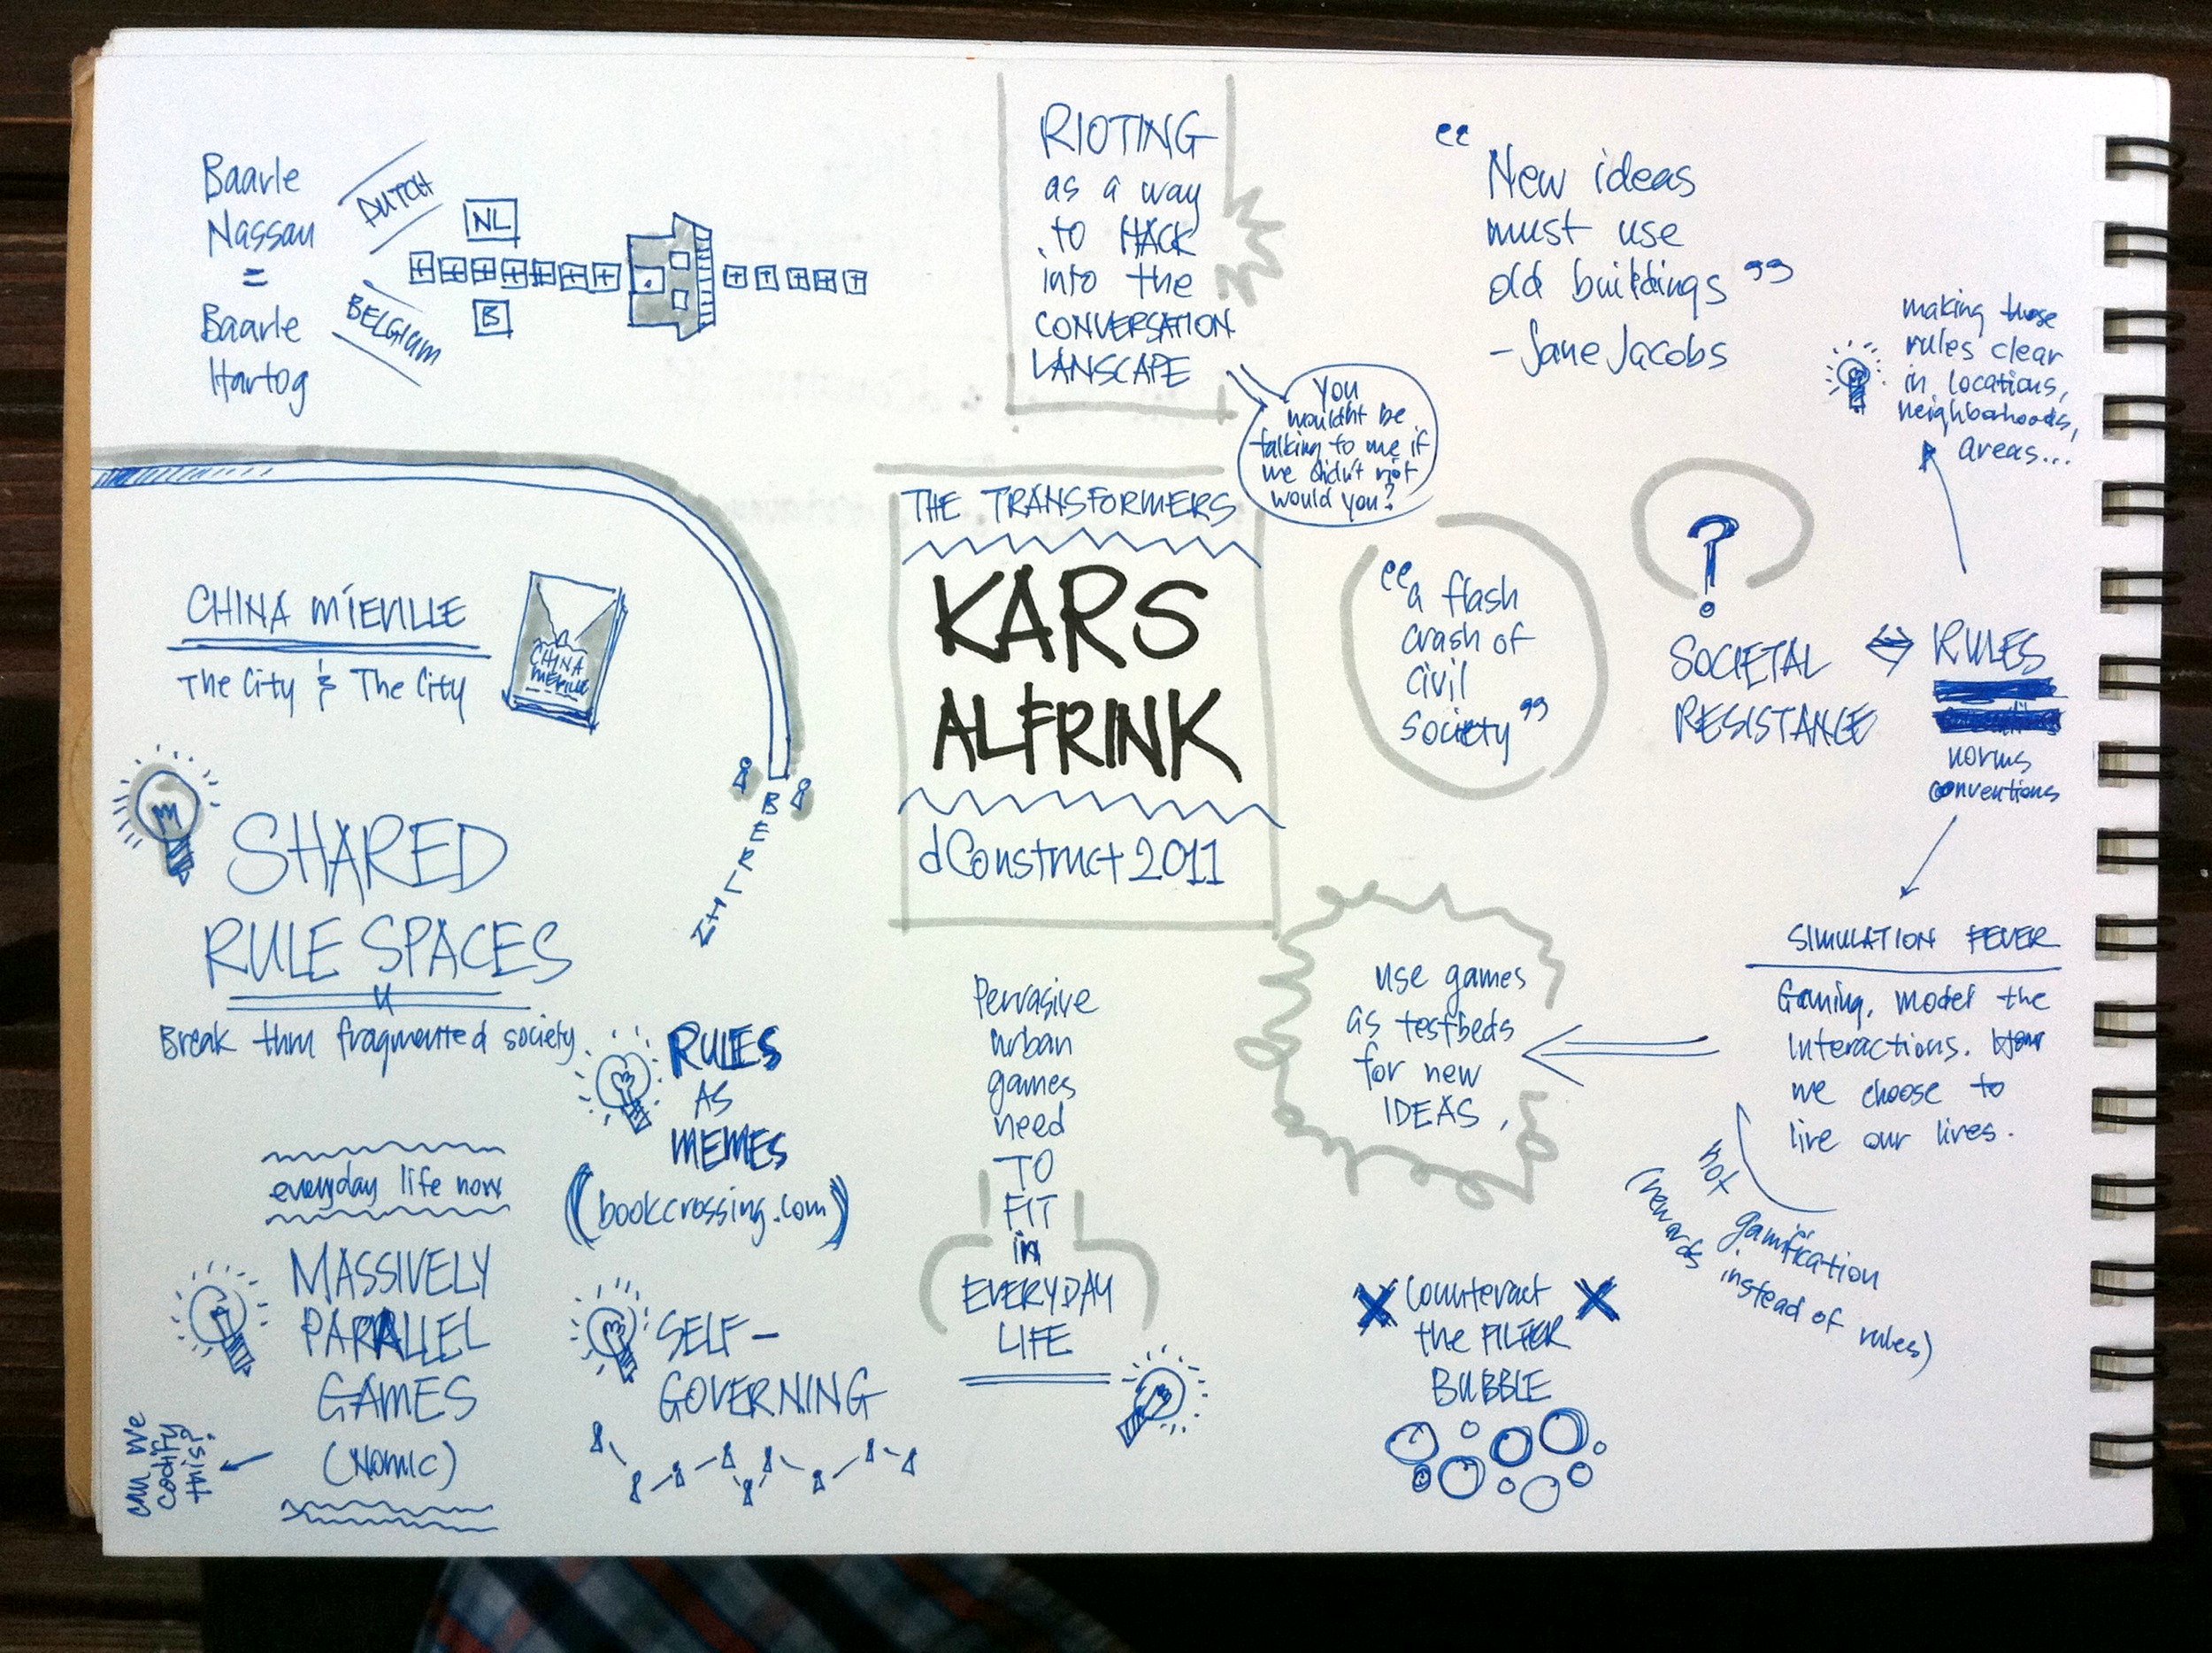 Baarle
Nassau
=
Baarle
Hartog
DUTCH
BELGIUM
NL
B
RIOTING
as a way
to HACK
into the
CONVERSATION
LANSCAPE
You
wouldn't be
talking to me if
we didn't riot
would you?
"New ideas
must use
old buildings"
- Jane Jacobs
making those
rules clear
in locations,
neighborhoods,
areas...
CHINA MIEVILLE
The City & The City
CHINA
MIEVILLE
BERLIN
THE TRANSFORMERS
KARS
ALFRINK
dConstruct 2011
"a flash
crash of
civil
society"
?
SOCIETAL
RESISTANCE
⇔ RULES
norms
conventions
SHARED
RULE SPACES
Break thru fragmented society
RULES
AS
MEMES
(bookcrossing.com)
everyday life now
MASSIVELY
PARALLEL
GAMES
(Nomic)
can we
codify
this?
SELF-
GOVERNING
Pervasive
urban
games
need
TO
FIT
in
EVERYDAY
LIFE
use games
as testbeds
for new
IDEAS,
SIMULATION FEVER
Gaming, model the
interactions. How
we choose to
live our lives.
not gamification
(rewards instead of rules)
X Counteract X
the FILTER
BUBBLE